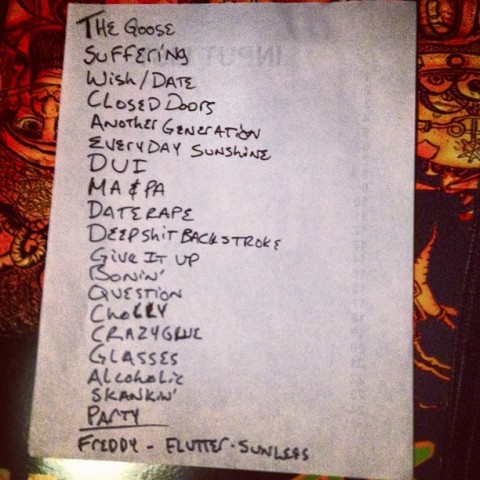 THE GOOSE
SUFFERING
WISH/DATE
CLOSED DOORS
ANOTHER GENERATION
EVERYDAY SUNSHINE
DUI
MA & PA
DATE RAPE
DEEPSHIT BACKSTROKE
GIVE IT UP
BONIN'
QUESTION
CHOLLY
CRAZYGLUE
GLASSES
ALCOHOLIC
SKANKIN'
PARTY
FREDDY - FLUTTER - SUNLESS